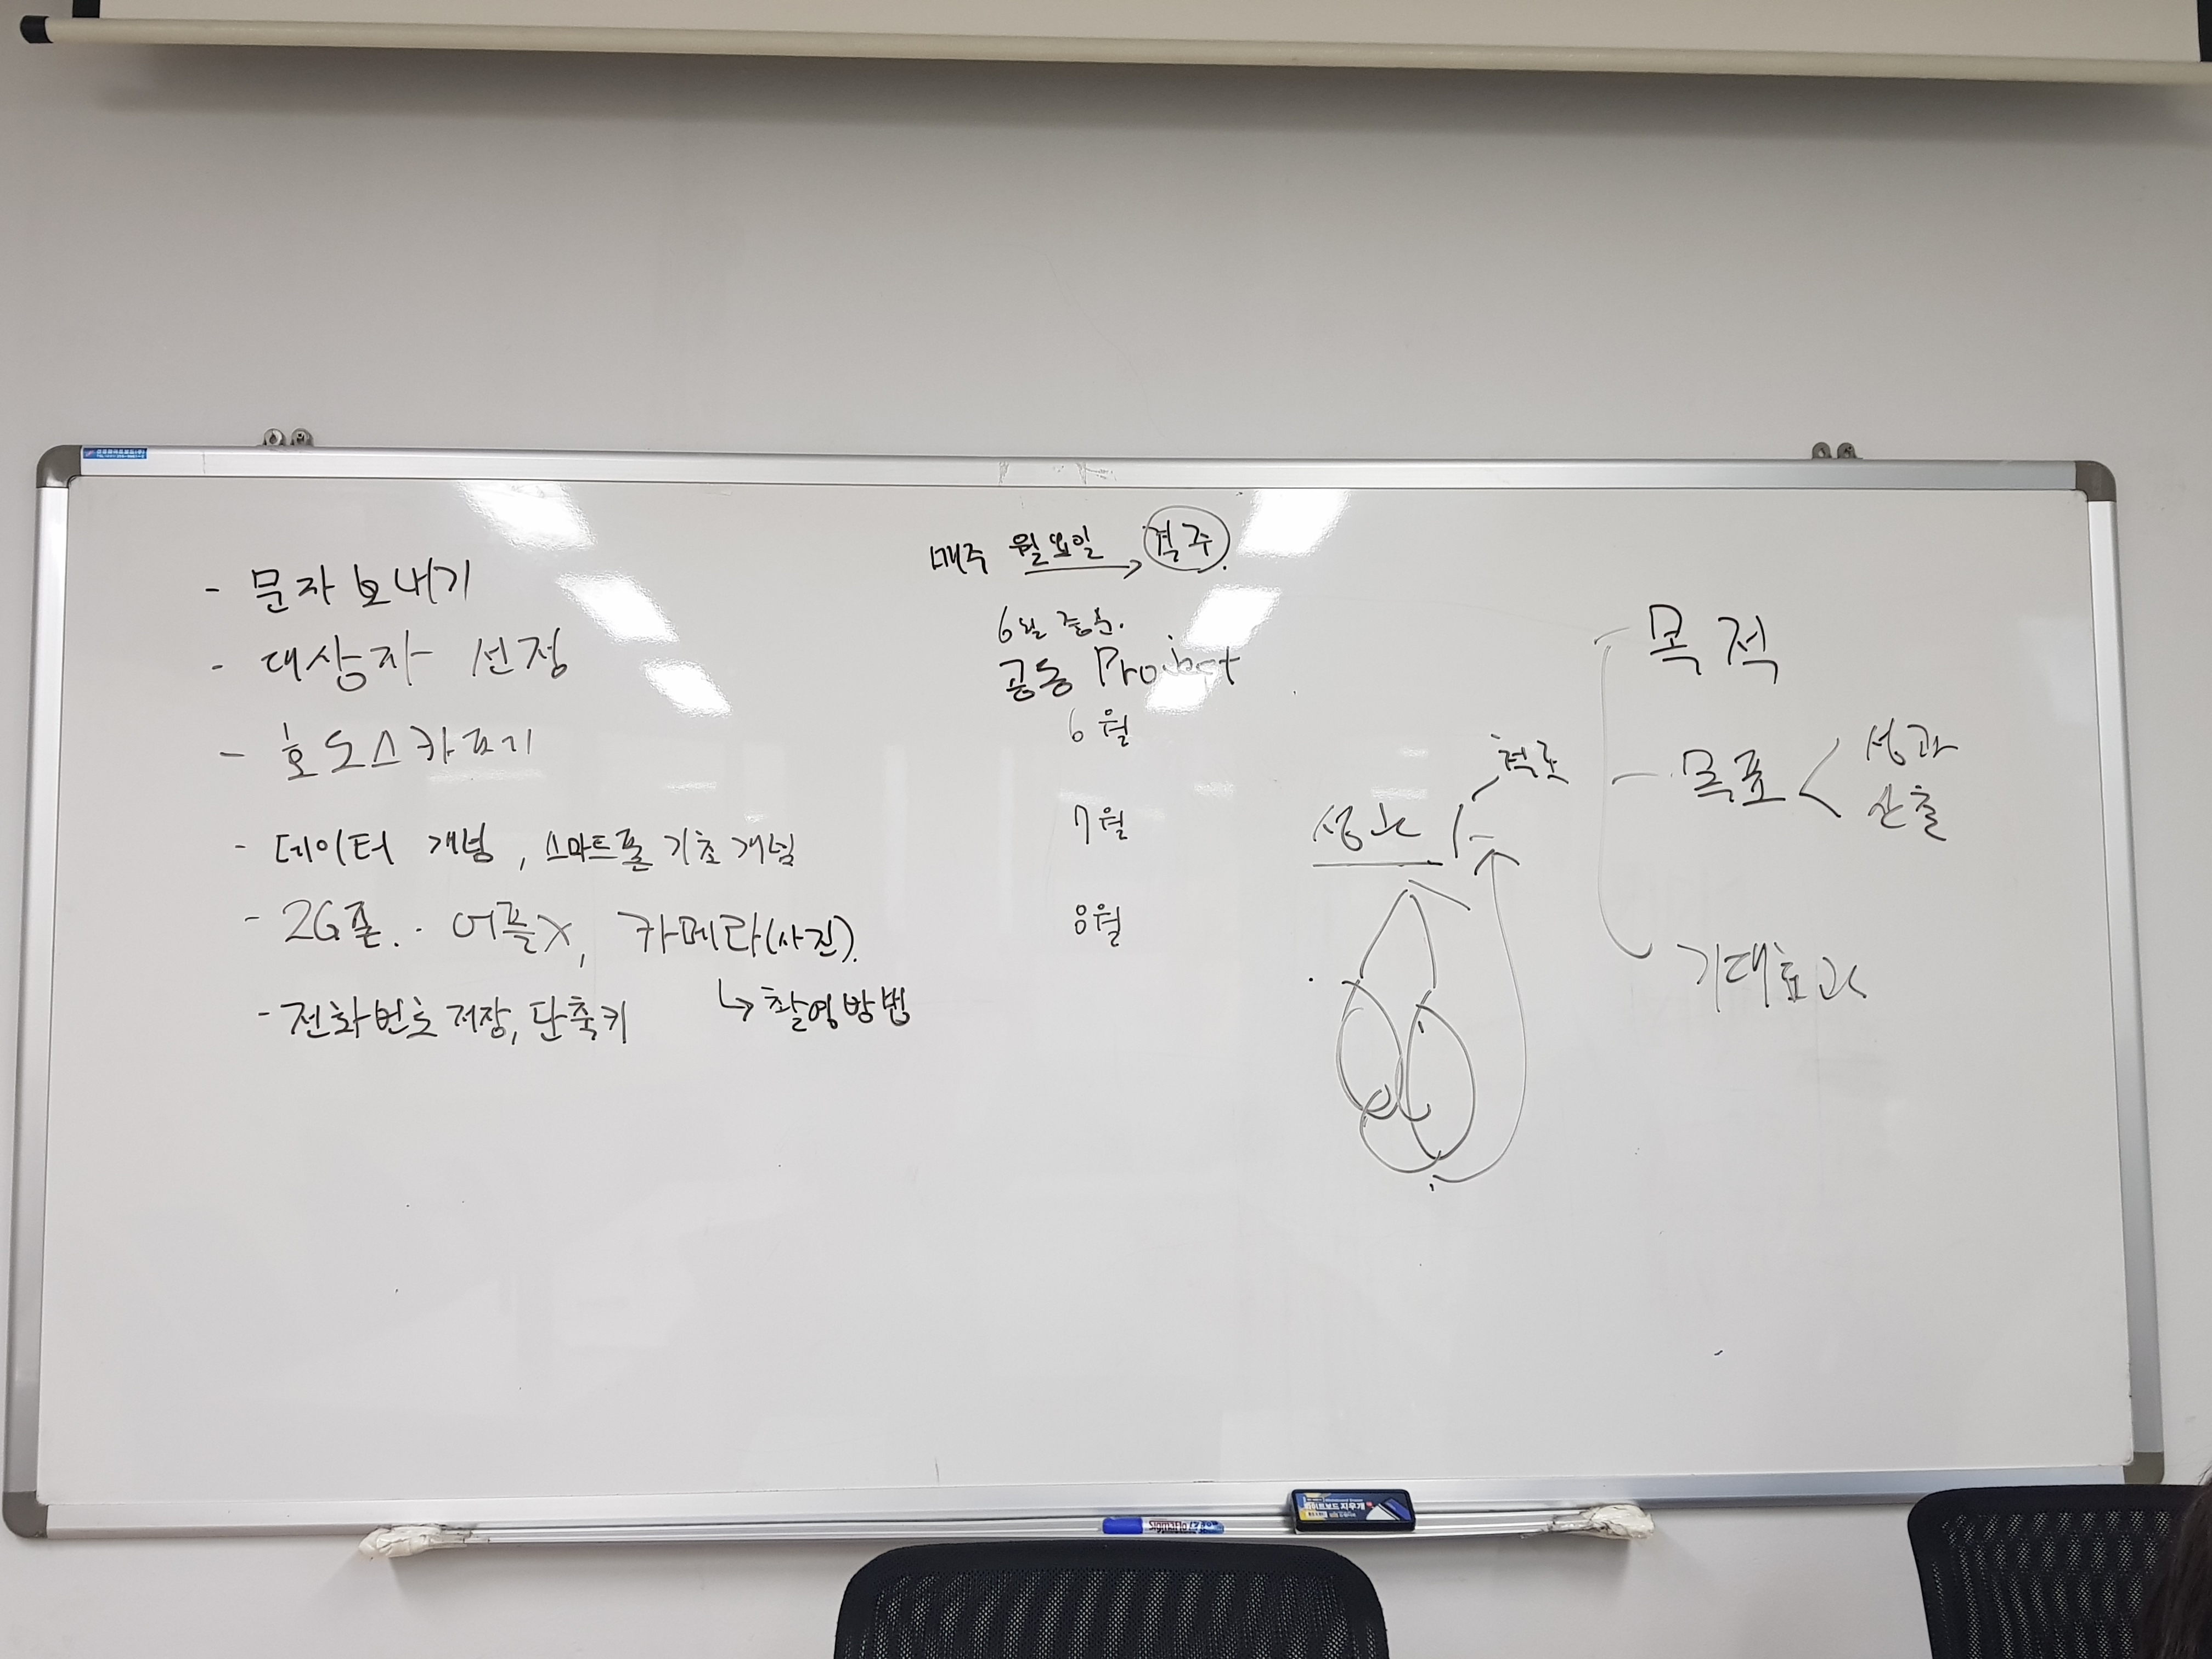 - 문자보내기
- 대상자 선정
- 호도스카프기
- 데이터 개념, 스마트폰 기초개념
- 2G폰.. 어플X, 카메라(사진).
↳ 촬영방법
- 전화번호저장, 단축키
매주 월요일 → 격주.
6월 중순.
공동 Project
6월
7월
8월
성과
척도
목적
목표 <
성과
산출
기대효과
화이트보드 지우개
SigmaFlo